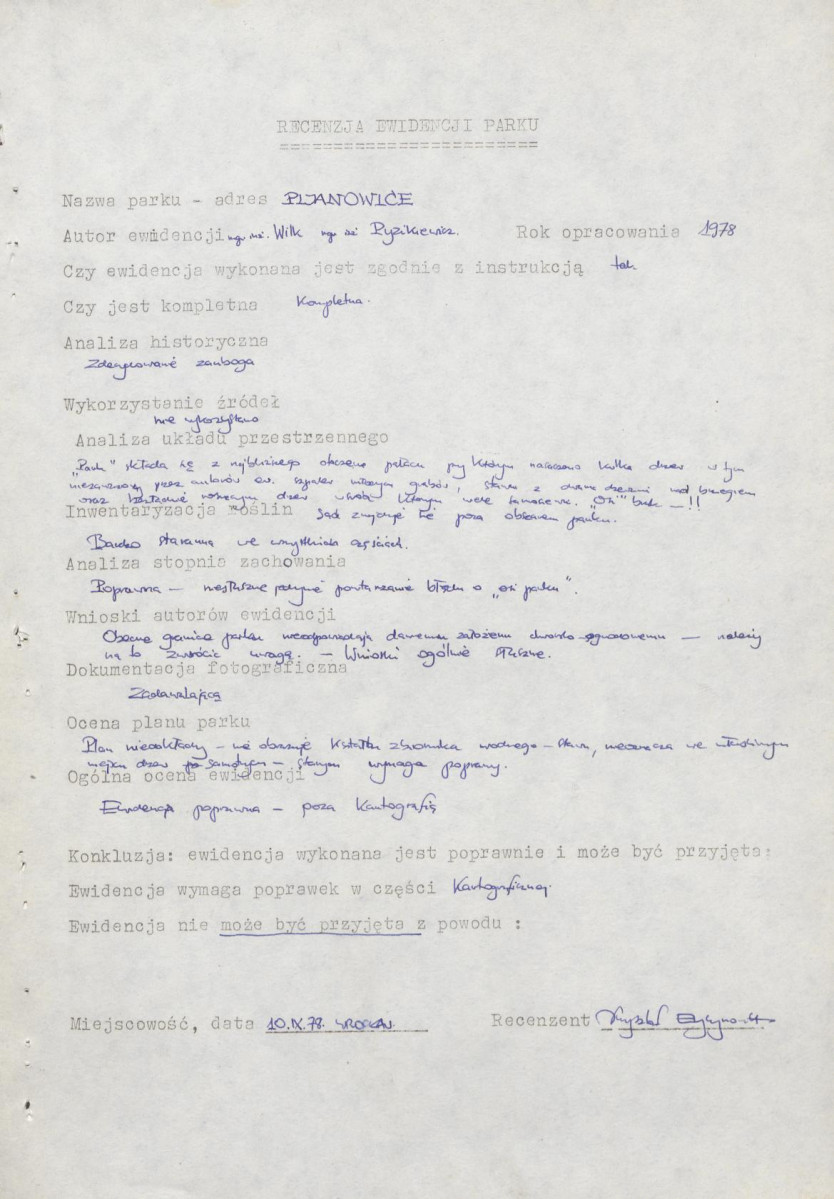 RECENZJA EWIDENCJI PARKU
========================
Nazwa parku - adres PIJANOWICE
Autor ewidencji mgr inż. Wilk mgr inż. Ryzikiewicz. Rok opracowania 1978
Czy ewidencja wykonana jest zgodnie z instrukcją tak.
Czy jest kompletna Kompletna.
Analiza historyczna
Zdecydowanie zauboga
Wykorzystanie źródeł
nie wykorzystano
Analiza układu przestrzennego
"Park" składa się z najbliższego otoczenia pałacu przy którym kilka drzew w tym
przez autorów ew. szpaler młodych grabów, stawu z drzewami nad brzegiem
oraz rosnącymi drzew wśród których wiele "Osi" brak - !!
Inwentaryzacja roślin
Sad znajduje się poza obszarem parku.
Bardzo staranna we wszystkich częściach.
Analiza stopnia zachowania
Poprawna - niesłuszne jedynie powtarzanie błędu o "osi parku".
Wnioski autorów ewidencji
Obecne granice parku nieodpowiadają dawnemu założeniu - należy
na to zwrócić uwagę. - Wnioski ogólnie słuszne.
Dokumentacja fotograficzna
Zadawalająca
Ocena planu parku
Plan niedokładny - nie obrazuje kształtu zbiornika wodnego - stawu, nieoznacza we właściwym
miejscu drzew - wymaga poprawy.
Ogólna ocena ewidencji
Ewidencja poprawna - poza Kartografią
Konkluzja: ewidencja wykonana jest poprawnie i może być przyjęta:
Ewidencja wymaga poprawek w części Kartograficznej.
Ewidencja nie może być przyjęta z powodu :
Miejscowość, data 10.IX.78. WROCŁAW. Recenzent Krzysztof